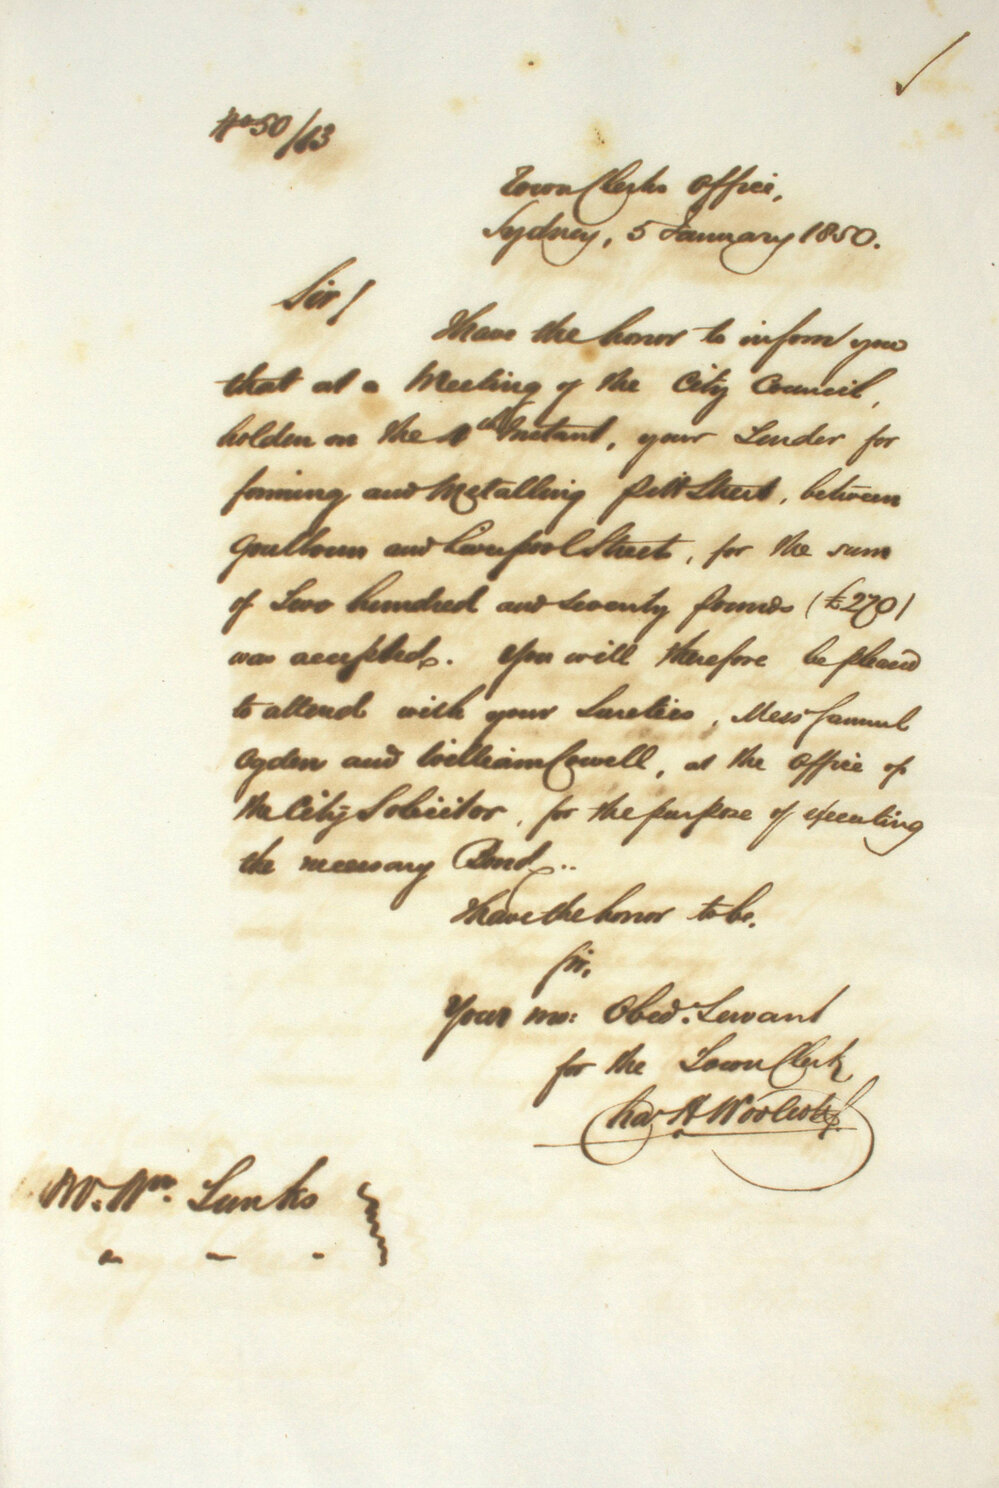 No 50/13
Town Clerks Office,
Sydney, 5 January 1850.
Sir!
I have the honor to inform you
that at a Meeting of the City Council,
holden on the 4th Instant, your Tender for
forming and Metalling Pitt Street, between
Goulburn and Liverpool Streets, for the sum
of Two hundred and seventy pounds (£270)
was accepted. You will therefore be pleased
to attend with your Sureties, Mess Samuel
Ogden and William Cowell, at the Office of
the City Solicitor, for the purpose of executing
the necessary Bond..
I have the honor to be,
Sir,
Your mo: Obed. Servant
for the Town Clerk
Chas H Woolcott
Mr. Wm.